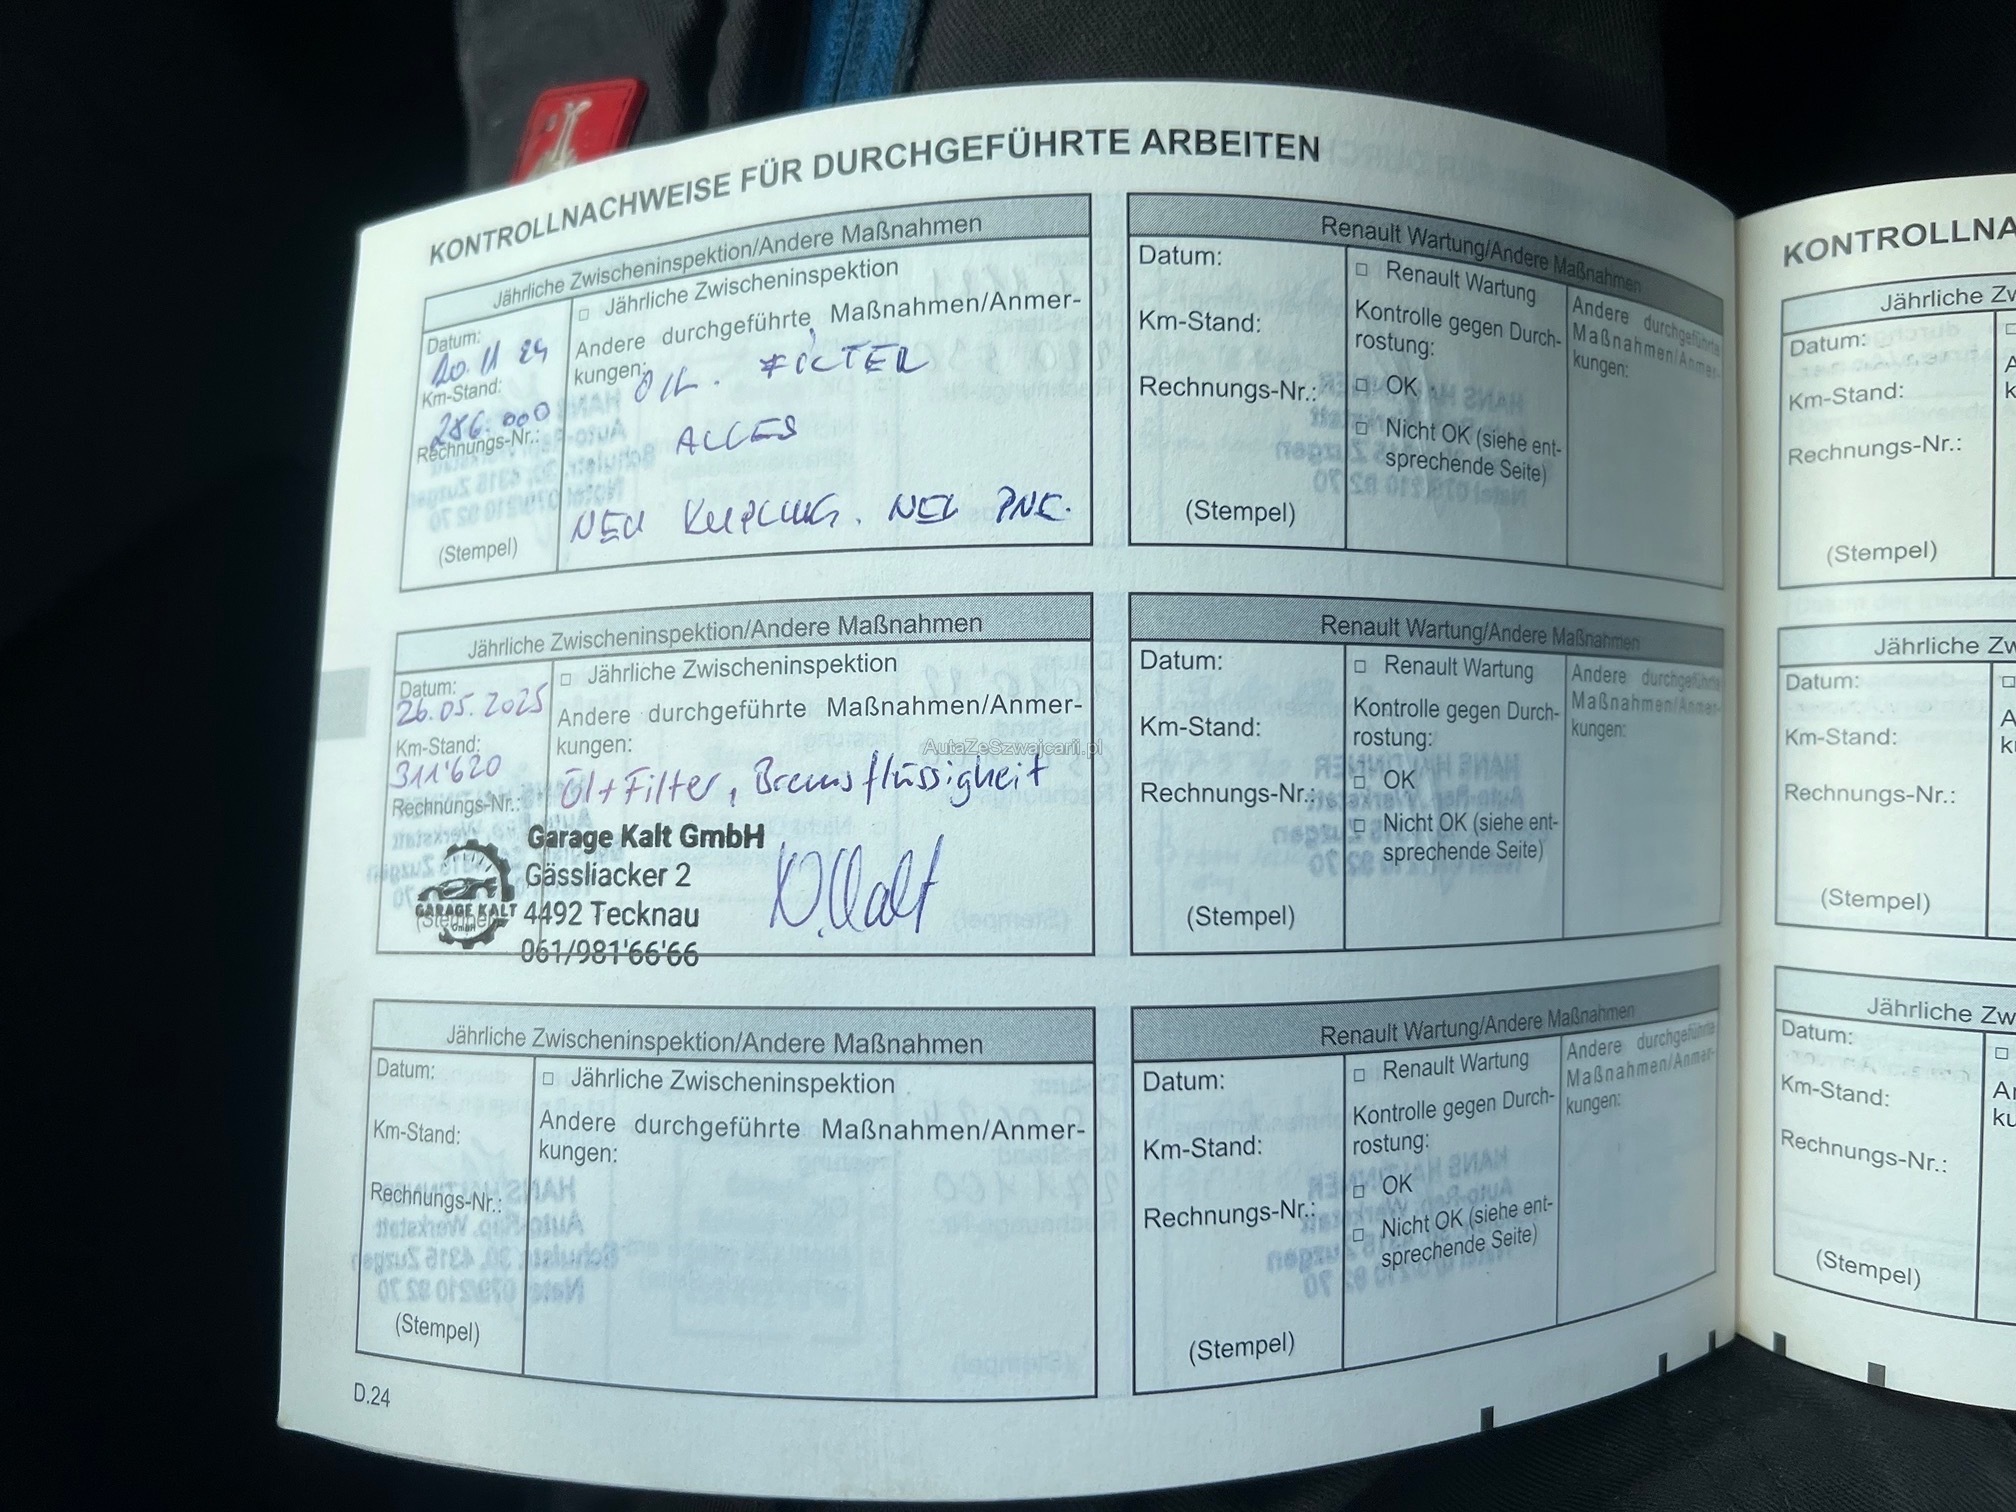 KONTROLLNACHWEISE FÜR DURCHGEFÜHRTE ARBEITEN
Jährliche Zwischeninspektion/Andere Maßnahmen
Datum:
20.11 24
Km-Stand:
286.000
Rechnungs-Nr.:
(Stempel)
□ Jährliche Zwischeninspektion
Andere durchgeführte Maßnahmen/Anmer-
kungen:
ÖIL. FILTER
ALLES
NEU KUPLUNG. NEU PNE.
Renault Wartung/Andere Maßnahmen
Datum:
Km-Stand:
Rechnungs-Nr.:
(Stempel)
□ Renault Wartung
Kontrolle gegen Durch-
rostung:
□ OK
□ Nicht OK (siehe ent-
sprechende Seite)
Andere durchgeführte
Maßnahmen/Anmer-
kungen:
Jährliche Zwischeninspektion/Andere Maßnahmen
Datum:
26.05.2025
Km-Stand:
311'620
Rechnungs-Nr.:
(Stempel)
□ Jährliche Zwischeninspektion
Andere durchgeführte Maßnahmen/Anmer-
kungen:
Öl+Filter, Bremsflüssigkeit
GARAGE KALT
GMBH
Garage Kalt GmbH
Gässliacker 2
4492 Tecknau
061/981'66'66
AutaZeSzwajcarii.pl
Renault Wartung/Andere Maßnahmen
Datum:
Km-Stand:
Rechnungs-Nr.:
(Stempel)
□ Renault Wartung
Kontrolle gegen Durch-
rostung:
□ OK
□ Nicht OK (siehe ent-
sprechende Seite)
Andere durchgeführte
Maßnahmen/Anmer-
kungen:
Jährliche Zwischeninspektion/Andere Maßnahmen
Datum:
Km-Stand:
Rechnungs-Nr.:
(Stempel)
□ Jährliche Zwischeninspektion
Andere durchgeführte Maßnahmen/Anmer-
kungen:
Renault Wartung/Andere Maßnahmen
Datum:
Km-Stand:
Rechnungs-Nr.:
(Stempel)
□ Renault Wartung
Kontrolle gegen Durch-
rostung:
□ OK
□ Nicht OK (siehe ent-
sprechende Seite)
Andere durchgeführte
Maßnahmen/Anmer-
kungen:
D.24
KONTROLLNA
Jährliche Zw
Datum:
Km-Stand:
Rechnungs-Nr.:
(Stempel)
Jährliche Zw
Datum:
Km-Stand:
Rechnungs-Nr.:
(Stempel)
Jährliche Zw
Datum:
Km-Stand:
Rechnungs-Nr.:
(Stempel)